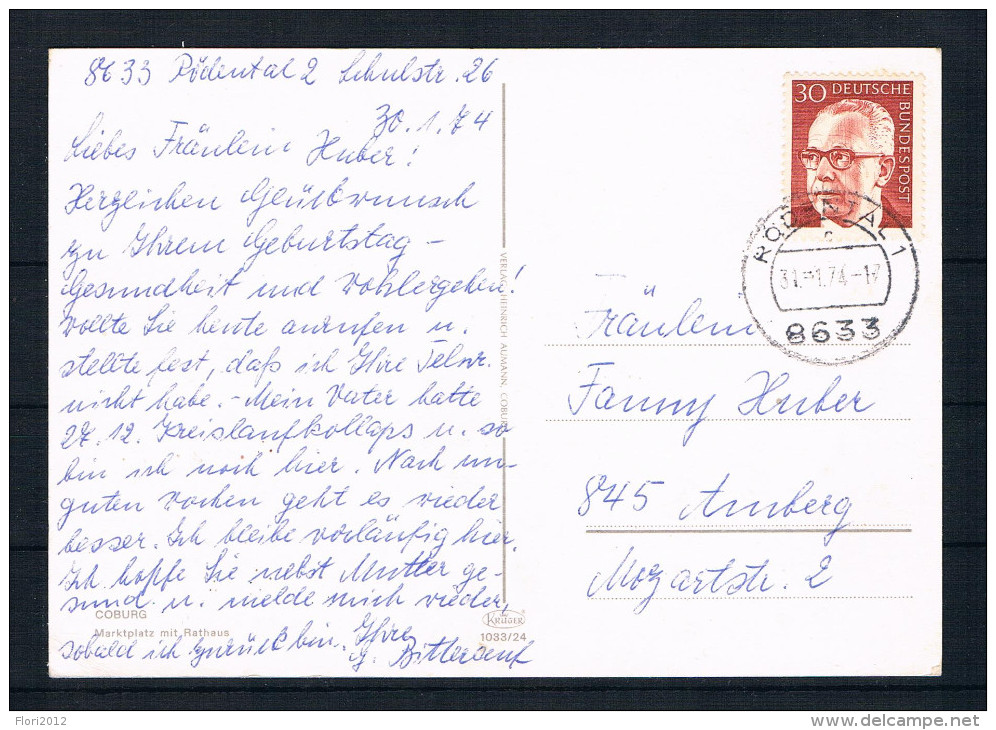 8633 Rödental 2 Schulstr. 26
30.1.74
Liebes Fräulein Huber!
Herzlichen Glückwunsch
zu Ihrem Geburtstag -
Gesundheit und Wohlergehen!
Wollte Sie heute anrufen u.
stellte fest, daß ich Ihre Telnr.
nicht habe. - Mein Vater hatte
27.12. Kreislaufkollaps u. so
bin ich noch hier. Nach un-
guten Wochen geht es wieder
besser. Ich bleibe vorläufig hier.
Ich hoffe Sie nebst Mutter ge-
sund u. melde mich wieder,
sobald ich zurück bin. Ihre
COBURG
Marktplatz mit Rathaus
VERLAG HEINRICH AUMANN, COBURG
KRÜGER
1033/24
30 DEUTSCHE
BUNDESPOST
RÖDENTAL 1
31.-1.74-17
8633
Fräulein
Fanny Huber
845 Amberg
Mozartstr. 2
Flori2012
delcampe.net